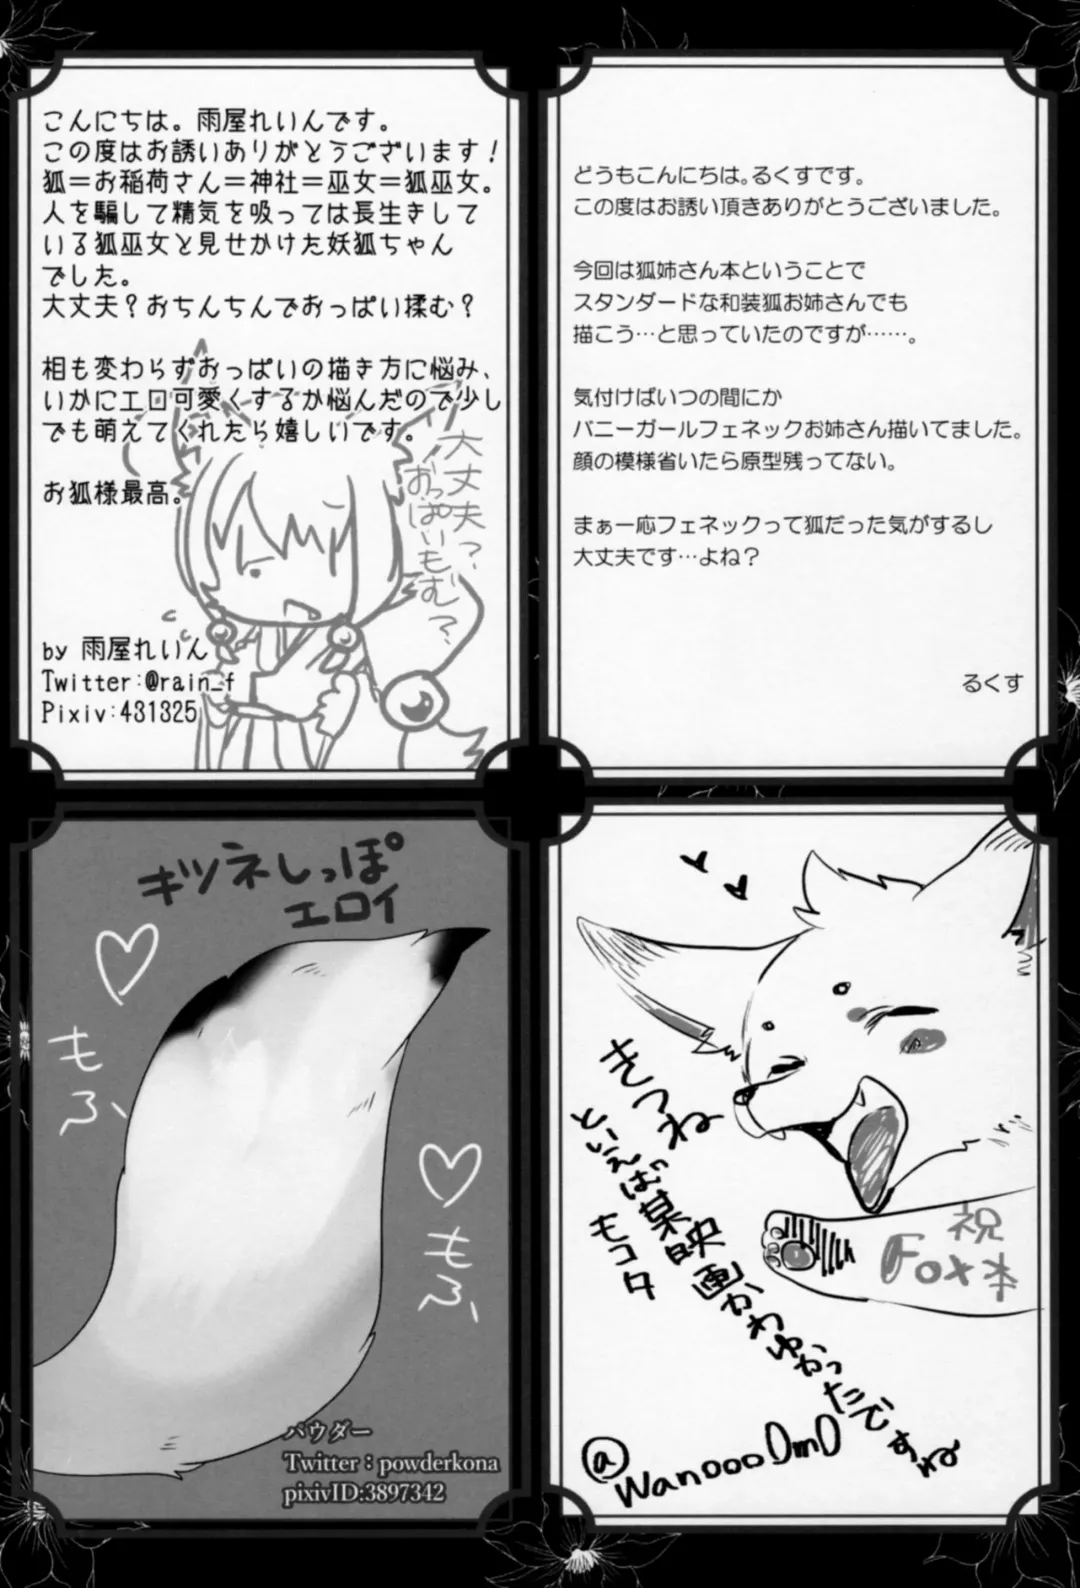 こんにちは。雨屋れいんです。
この度はお誘いありがとうございます！
狐＝お稲荷さん＝神社＝巫女＝狐巫女。
人を騙して精気を吸っては長生きして
いる狐巫女と見せかけた妖狐ちゃん
でした。
大丈夫？おちんちんでおっぱい揉む？
相も変わらずおっぱいの描き方に悩み、
いかにエロ可愛くするか悩んだので少し
でも萌えてくれたら嬉しいです。
お狐様最高。
大丈夫？
おっぱいもむ？
by 雨屋れいん
Twitter:@rain_f
Pixiv:431325
どうもこんにちは。るくすです。
この度はお誘い頂きありがとうございました。
今回は狐姉さん本ということで
スタンダードな和装狐お姉さんでも
描こう…と思っていたのですが……。
気付けばいつの間にか
バニーガールフェネックお姉さん描いてました。
顔の模様省いたら原型残ってない。
まぁ一応フェネックって狐だった気がするし
大丈夫です…よね？
るくす
キツネしっぽ
エロイ
もふ
もふ
パウダー
Twitter：powderkona
pixivID:3897342
きつね
といえば某映画かわゆかったですね
モコタ
祝
Fox本
@wanoooOmO